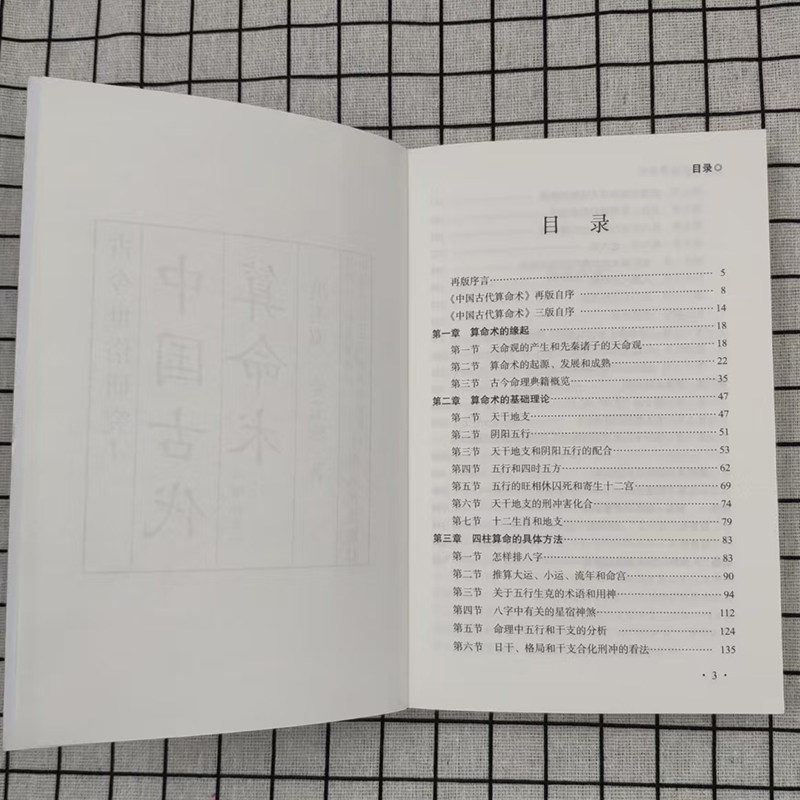 目录
目 录
再版序言 5
《中国古代算命术》再版自序 8
《中国古代算命术》三版自序 14
第一章 算命术的缘起 18
第一节 天命观的产生和先秦诸子的天命观 18
第二节 算命术的起源、发展和成熟 22
第三节 古今命理典籍概览 35
第二章 算命术的基础理论 47
第一节 天干地支 47
第二节 阴阳五行 51
第三节 天干地支和阴阳五行的配合 53
第四节 五行和四时五方 62
第五节 五行的旺相休囚死和寄生十二宫 69
第六节 天干地支的刑冲害化合 74
第七节 十二生肖和地支 79
第三章 四柱算命的具体方法 83
第一节 怎样排八字 83
第二节 推算大运、小运、流年和命宫 90
第三节 关于五行生克的术语和用神 94
第四节 八字中有关的星宿神煞 112
第五节 命理中五行和干支的分析 124
第六节 日干、格局和干支合化刑冲的看法 135
· 3 ·
中国古代
算命术
古今世俗研究